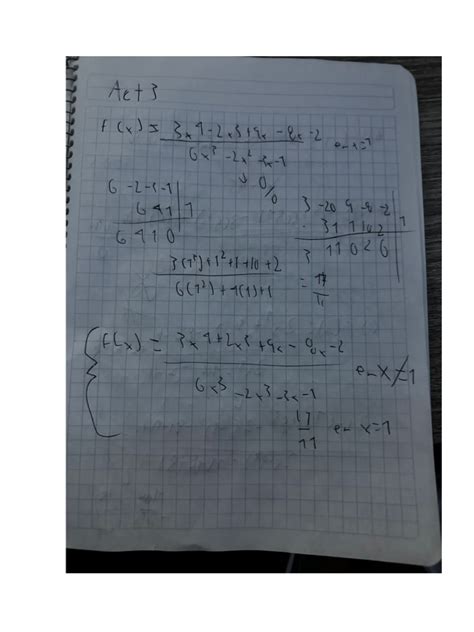 Act 3
f(x) = 3x4-2x3+9x-8x-2 / 6x3-2x2-3x-1 en x=1
↓ 0/0
6 -2 -3 -1 | 1
6 4 1
6 4 1 0
3 -2 0 9 -8 -2 | 1
3 1 1 10 2
3 1 1 0 2 0
3(1³)+1²+1+10+2 / 6(1²)+4(1)+1 = 17/11
f(x) = 3x4+2x3+9x-8x-2 / 6x3-2x3-3x-1 en x≠1
17/11 en x=1